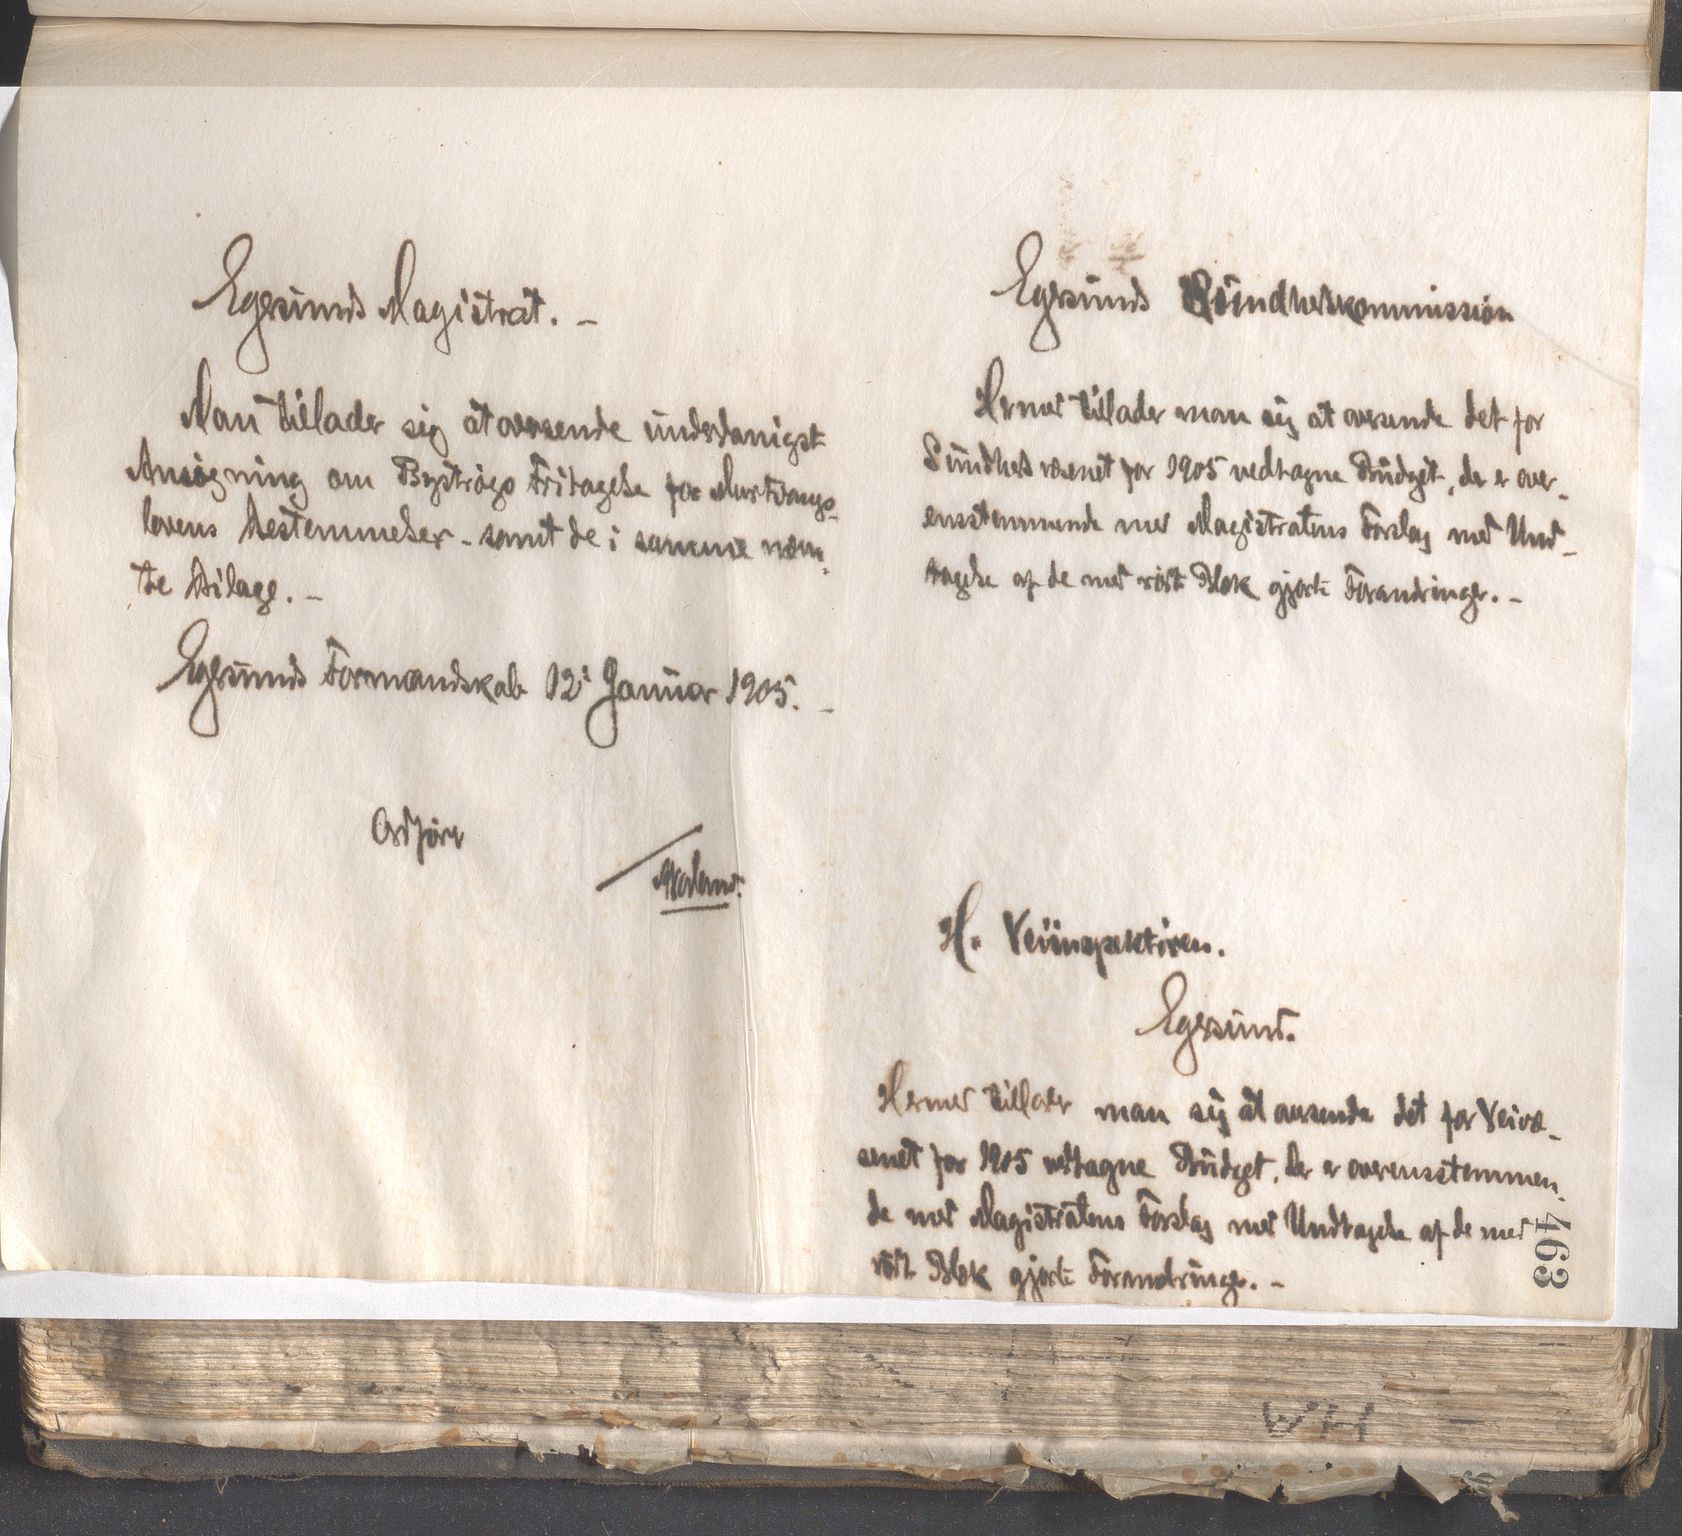 Egersunds Magistrat. -
Man tillader sig at oversende underdanigst
Ansøgning om Bystrøgs Fritagelse for Murtvangs-
lovens Bestemmelser - samt de i samme nævn-
te Bilage. -
Egersunds Formandskab 12' Januar 1905. -
Ordfører
Egersunds Sundhedskommission
Hermed tillader man sig at oversende det for
Sundhedsvæsenet for 1905 vedtagne Budget, der er over-
ensstemmende med Magistratens Forslag med Und-
tagelse af de med rødt Blæk gjorte Forandringer. -
H. Veiinspektøren.
Egersund.
Hermed tillader man sig at oversende det for Veivæ-
senet for 1905 vedtagne Budget, der er overensstemmen-
de med Magistratens Forslag med Undtagelse af de med
rødt Blæk gjorte Forandringer. -
463
WH